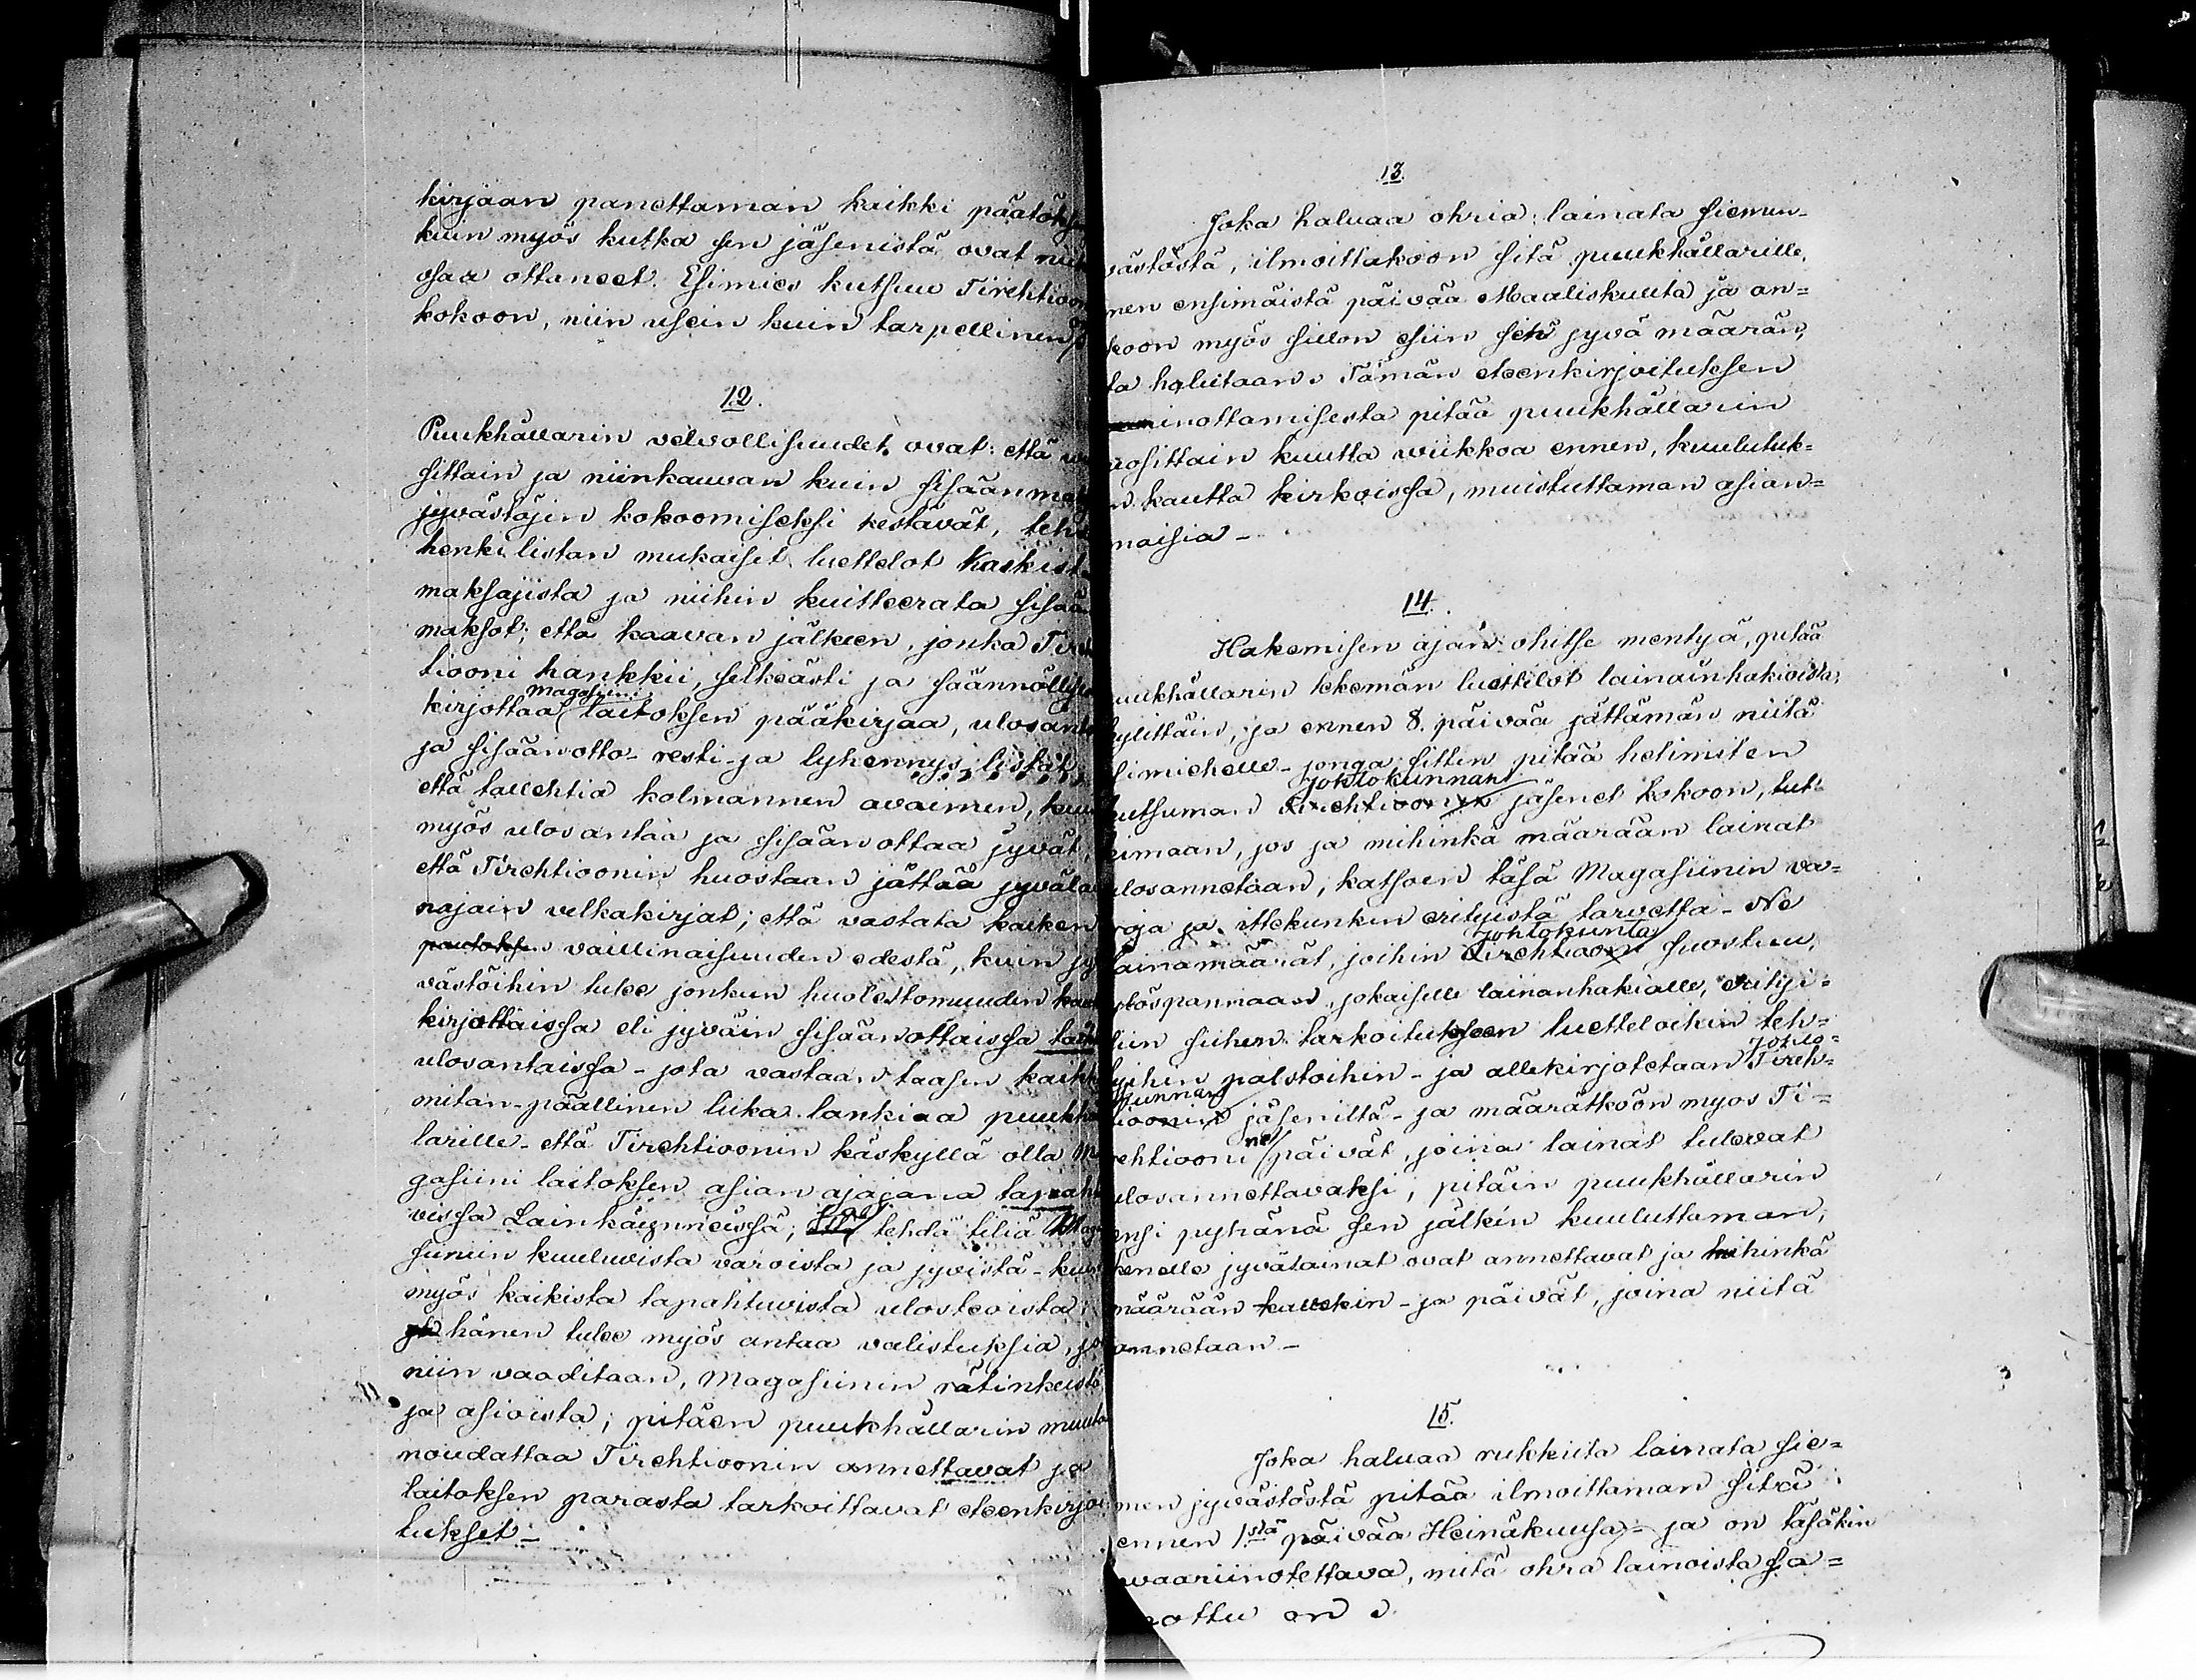 kirjaan panettaman kaikki päätökse
kuin myös kutka sen jäsenistä ovat niit
osaa ottaneet. Esimies kutsuu Tirehtioon
kokoon, niin usein kuin tarpellinen
12.
Puukhållarin velvollisuudet ovat: että
sittain ja niinkauvan kuin sisäänma
jyvästöjin kokoomiseksi kestävät, teh
henki listan mukaiset luettelot Kaikist
maksajista ja niihin kuitteerata sisään
maksot; että kaavan jälkeen, jonka Tire
tiooni hankkii, selkeästi ja säännöllise
Magasiini
kirjottaa laitoksen pääkirjaa, ulosant
ja sisäänotto- resti- ja lyhennys listat
että tallehtia kolmannen avaimen, kuu
myös ulosantaa ja sisäänottaa jyvät,
että Tirehtioonin huostaan jättää jyvälai
najain velkakirjat; että vastata kaiken
vaillinaisuuden edestä, kuin jy
västöihin tulee jonkun huolestomuuden kau
kirjottaissa eli jyväin sisäänottaissa
ulosantaissa - jota vastaan taasen kaikk
mitan-päällinen luka lankiaa puukhå
larille - että Tirehtioonin käskyllä olla Ma
gasiini laitoksen asian ajajana tapaht
vissa Lainkäynneissä; tehdä tiliä Maga
siiniin kuuluvista varoista ja jyvistä - kuin
myös kaikista tapahtuvista ulosteoista;
hänen tulee myös antaa valistuksia, jo
niin vaaditaan, Magasiinin rätinkeistä
ja asioista; pitäen puukhållarin muuto
noudattaa Tirehtioonin annettavat ja
laitoksen parasta tarkoittavat eteenkirjoi
tukset -
13.
Joka haluaa ohria lainata siemen-
västöstä, ilmoittakoon sitä puukhållarille,
nen ensimäistä päivää Maaliskuuta ja an=
koon myös sillon esiin sen jyvä määrän,
ta halutaan. Tämän eteenkirjoituksen
inottamisesta pitää puukhållarin
uosittain kuutta wiikkoa ennen, kuulutuk=
n kautta kirkoissa, muistuttaman asian=
maisia -
14.
Hakemisen ajan ohitse mentyä, pitää
uukhållarin tekemän luettelot lainainhakioista,
kylittäin, ja ennen 8. päivää jättämän niitä
simiehelle - jonga sitten pitää helimiten
johtokunnan
kutsuman Tirehtioonin jäsenet kokoon, tut-
kimaan, jos ja mihinkä määrään lainat
ulosannetaan, katsoen täsä Magasiinin va=
roja ja ittekunkin erityistä tarvetta - Ne
Johtokunta
lainamäärät, joihin Tirehtiooni suostuu,
ylöspannaan, jokaiselle lainanhakialle, erityi=
siin siihen tarkoitukseen luetteloihin teh=
Johto=
tyihin palstoihin - ja allekirjotetaan Tireh=
kunnan
tioonin jäseniltä - ja määrätköön myös Ti=
ne
rehtiooni päivät, joina lainat tulevat
ulosannettavaksi, pitäin puukhållarin
ensi pyhänä sen jälkin kuuluttaman,
kenelle jyvälainat ovat annettavat ja mihinkä
määrään kullekin - ja päivät, joina niitä
annetaan -
15.
Joka haluaa rukkiita lainata sie=
men jyvästöstä pitää ilmoittaman sitä
ennen 1stä päivää Heinäkuusa - ja on täsäkin
waariinotettava, mitä ohra lainoista sa=
nottu on.